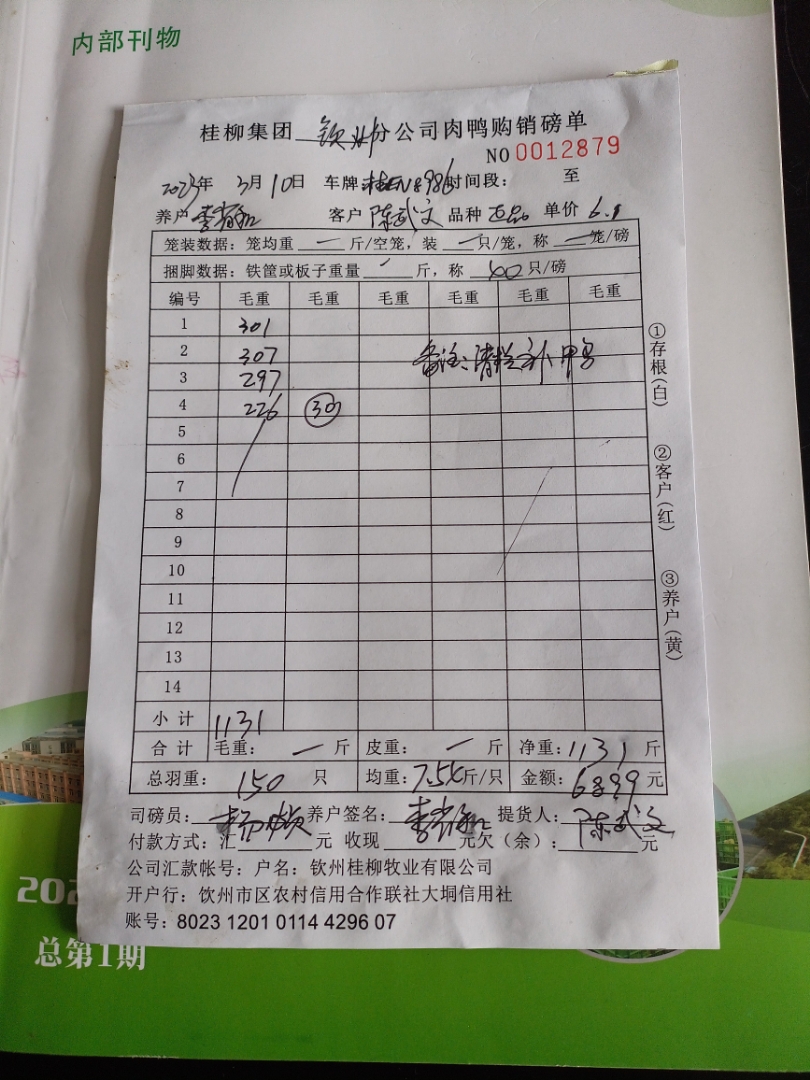 内部刊物
桂柳集团 钦州分公司肉鸭购销磅单
NO 0012879
2023年 3月10日 车牌 桂EN8986 时间段： 至
养户 客户 陈武文 品种 正品 单价 6.1
笼装数据：笼均重 一 斤/空笼，装 一 只/笼，称 一 笼/磅
捆脚数据：铁筐或板子重量 斤，称 40 只/磅
编号 毛重 毛重 毛重 毛重 毛重 毛重
1 301
2 307
备注：
3 297
4 226 30
5
6
7
8
9
10
11
12
13
14
小计 1131
合计 毛重： 一 斤 皮重： 一 斤 净重：1131 斤
总羽重： 150 只 均重：7.54斤/只 金额：6899 元
司磅员： 养户签名： 提货人：陈武文
付款方式：汇 元 收现 元欠（余）： 元
公司汇款帐号：户名：钦州桂柳牧业有限公司
开户行：饮州市区农村信用合作联社大垌信用社
账号：8023 1201 0114 4296 07
①存根(白)
②客户(红)
③养户(黄)
202
总第1期